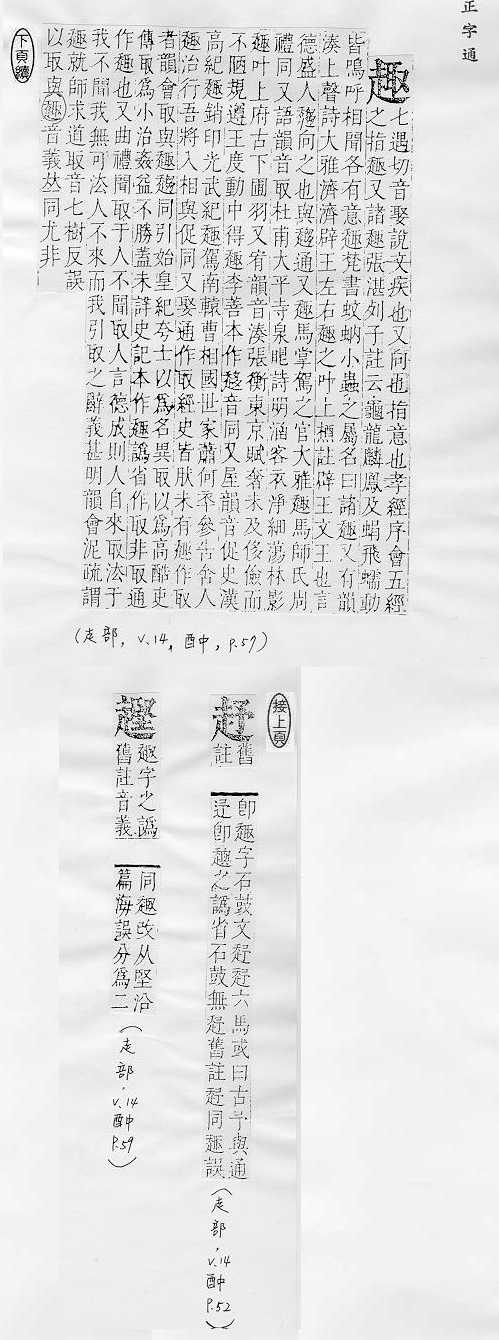 正字通
趣
七遇切音娶說文疾也又向也指意也孝經序會五經
之指趣又諸趣張湛列子註云龜龍麟鳳及蜎飛蠕動
皆嗚呼相聞各有意趣梵書蚊蚋小蟲之屬名曰諸趣又有韻
湊上聲詩大雅濟濟辟王左右趣之叶上槱註辟王文王也言
德盛人趨向之也與趨通又趣馬掌駕之官大雅趣馬師氏周
禮同又語韻音取杜甫大平寺泉眼詩明涵客衣淨細蕩林影
趣叶上府古下圃羽又宥韻音湊張衡東京賦奢未及侈儉而
不陋規遵王度動中得趣李善本作趍音同又屋韻音促史漢
高紀趣銷印光武紀趣駕南轅曹相國世家蕭何卒參告舍人
趣治行吾將入相與促同又娶通作取經史皆肰未有趣作取
者韻會取與趣趨同引始皇紀夸士以爲名異取以爲高酷吏
傳取爲小治姦益不勝蓋未詳史記本作趣譌省作取非取通
作趣也又曲禮聞取于人不聞取人言德成則人自來取法于
我不聞我無可法人不來而我引取之辭義甚明韻會泥疏謂
趣就師求道取音七樹反誤
以取與趣音義𠀤同尤非
下頁續
(走部, v.14, 酉中, p.57)
接上頁
舊
註
卽趣字石鼓文六馬或曰古與通
卽趣之譌省石鼓無舊註同趣誤
(走部, v.14 酉中 p.52)
趣字之譌
舊註音義
同趣改从堅沿
篇海誤分爲二
(走部, v.14 酉中 p.59)